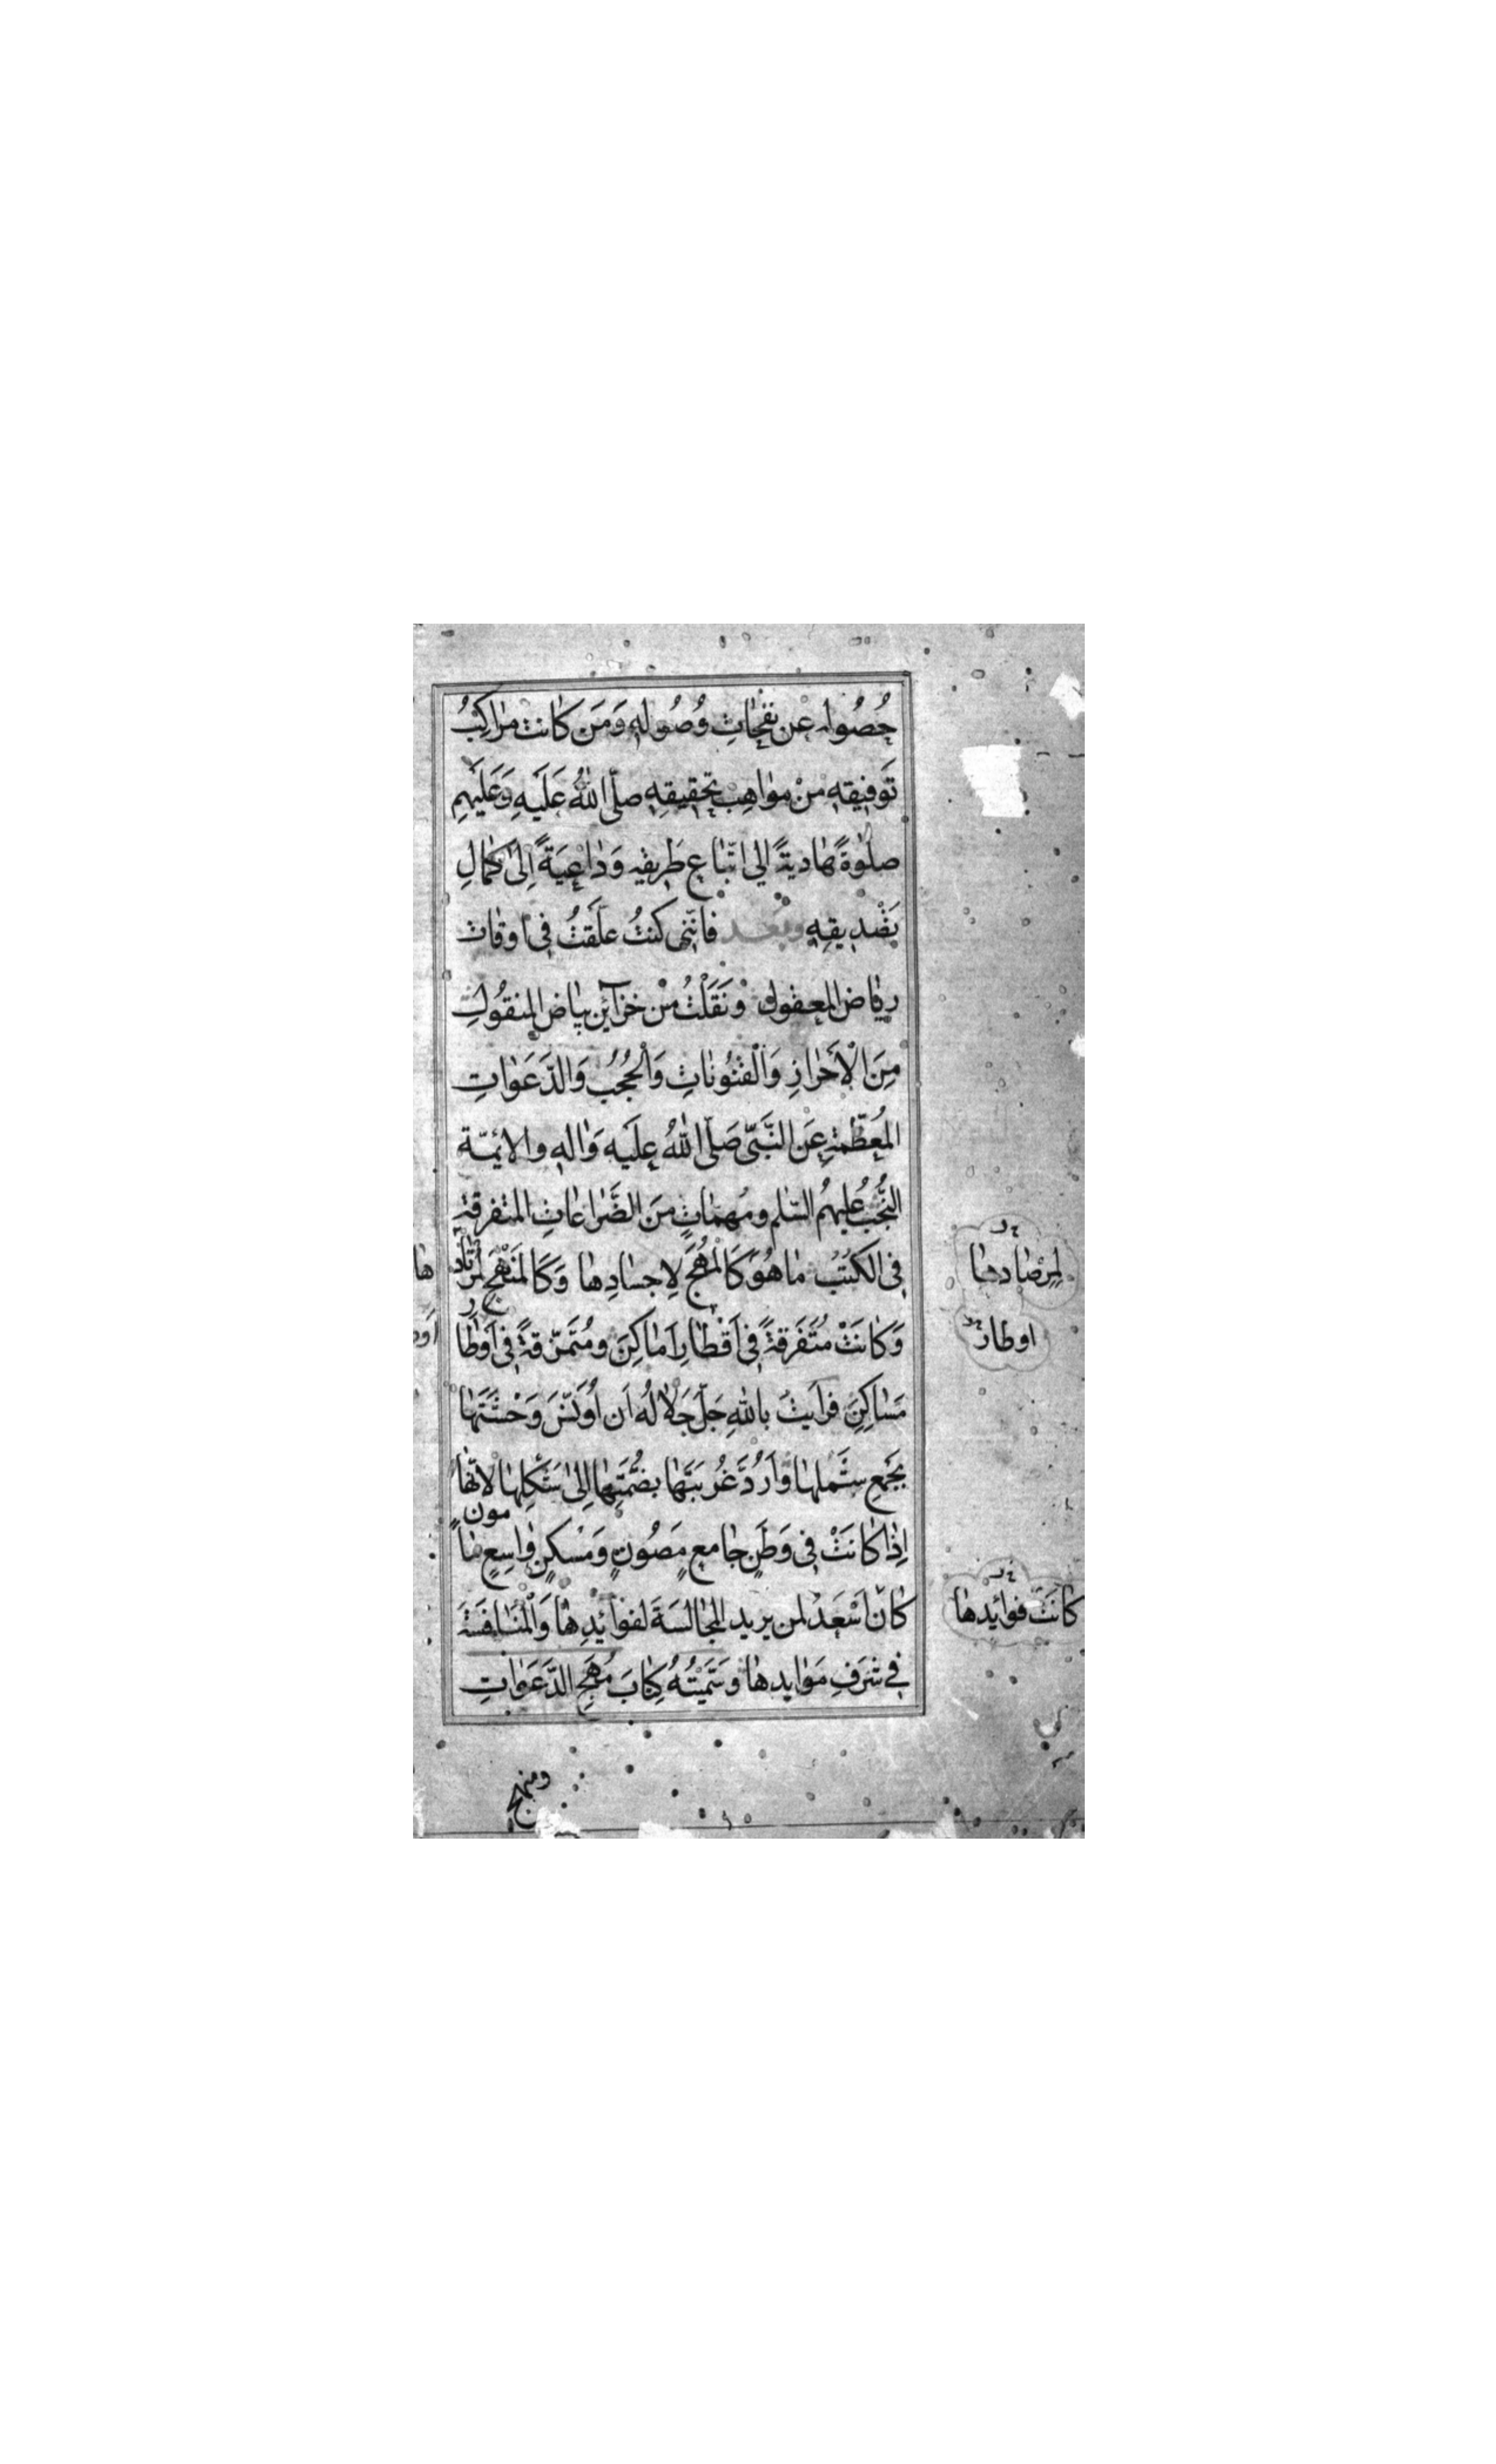 حُصُوله عن نفحاتِ وُصُوله وَمَن كانت مراكبُ
تَوفيقه مِنْ مواهب تحقيقه صلّى اللهُ عَلَيهِ وَعَلَيهِم
صلٰوةً هادِيةً الى اتّباع طَريقه وَداعِيَةً اِلى كَمالِ
تَصْديقِهِ وبَعد فانّنى كنتُ علّقتُ فى اوقات
رياض المعقول وَنَقَلْتُ مِنْ خزآئن بياض المنقُولِ
مِنَ الْأَحْرازِ وَالْقنُوتاتِ وَالْحُجُب وَالدَّعَواتِ
المُعظّمة عَن النَّبىّ صَلّى اللهُ علَيه وَاله والائمّة
النُّجُب عليهُم السّلم ومُهمّاتٍ مِنَ الضَّراعاتِ المتفرقة
فى الكتُب ما هُوَ كَالمُهَج لِاجسادِها وَكَالمَنْهَج لمُرتاد
وَكانَتْ مُتَفَرقةً فى اَقْطارِ اَماكِنَ ومُتَمَزّقةً فى اَوْطار
مَساكِنِ فرايتُ باللهِ جَلّ جَلالُه اَن اُونّسَ وَحْشَتَها
بجَمع شَملها وَاَرُدَّ غُربَتَها بضُمّتها اِلى شَكلِها لاَنّها
اِذا كانَتْ فى وَطَنٍ جامعٍ مَصُونٍ وَمَسْكنٍ واسِعٍ مامون
كانَ اَسْعَدُ لمن يريد المجالسَةَ لفوآئدِها وَالْمُنافسَة
فى شرَفِ مَوايدها وَسَمّيتُهُ كِتابَ مُهَجِ الدَّعَواتِ
ومنهج
لِمِرْصادِها
اوطار
كانَت فوآئدها